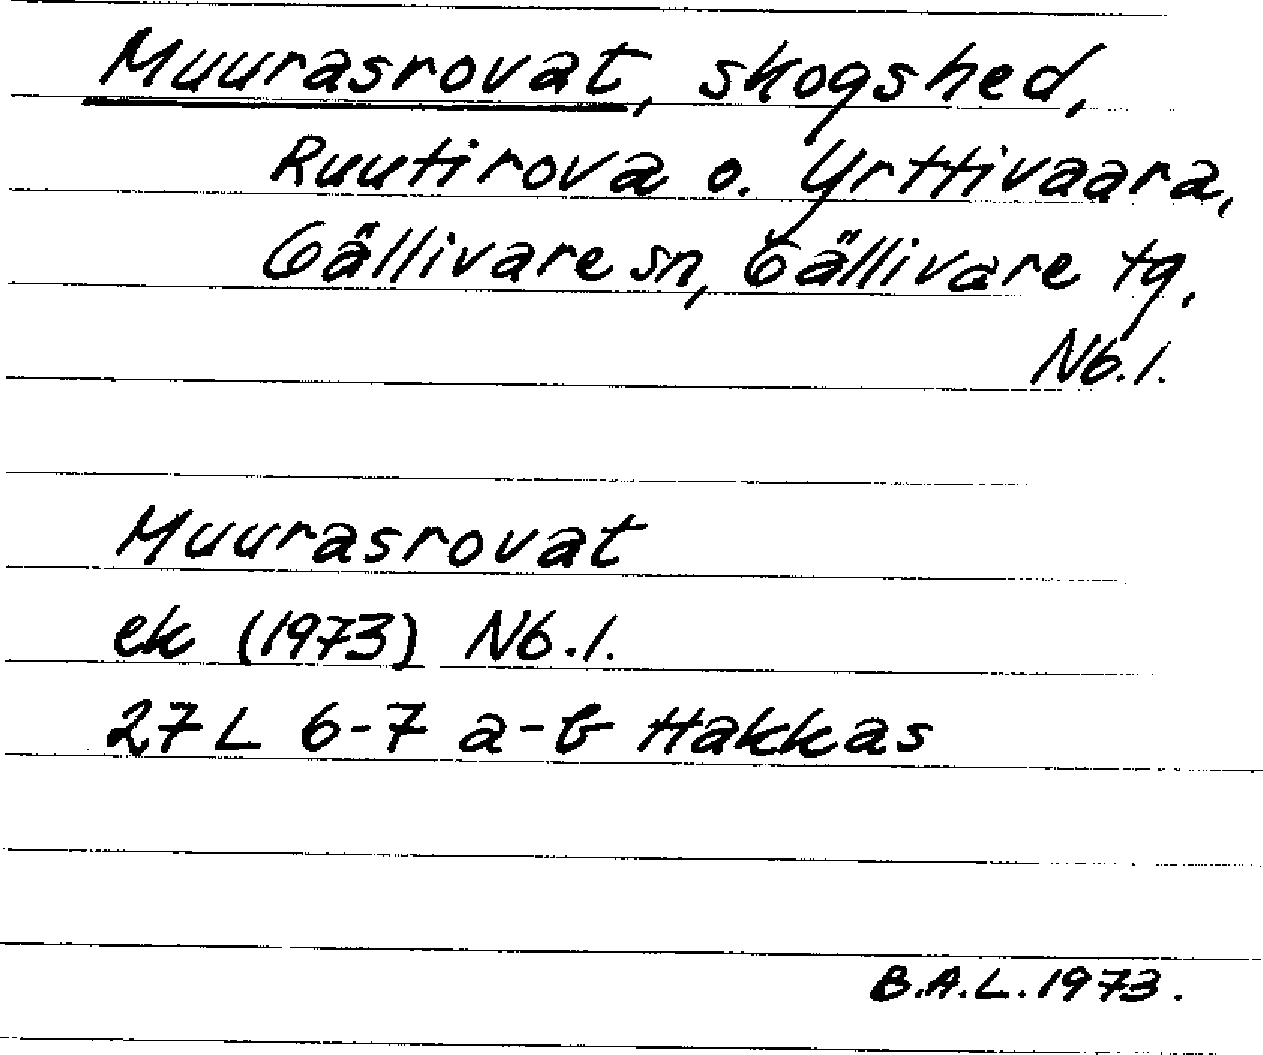 Muurasrovat, skogshed,
Ruutirova o. Yrttivaara,
Gällivare sn, Gällivare tg,
Nb.l.
Muurasrovat
ek (1973) Nb.l.
27 L 6-7 a-b Hakkas
B.A.L. 1973.